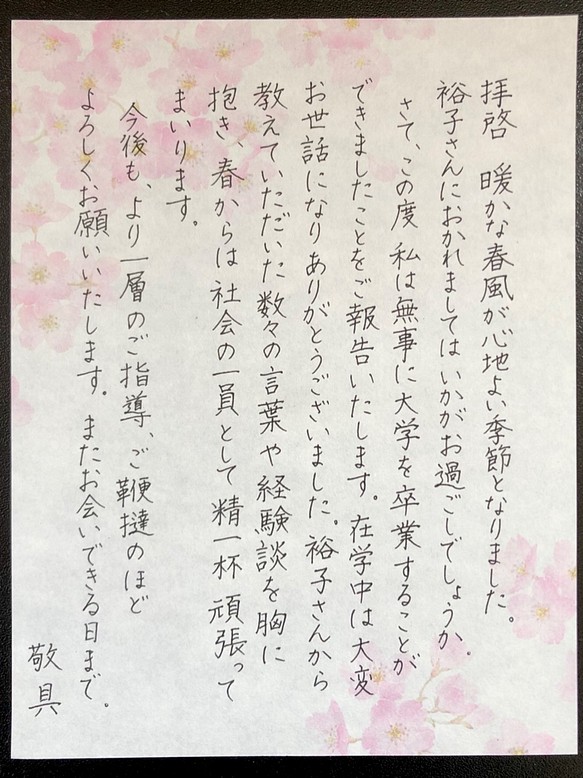 拝啓　暖かな春風が心地よい季節となりました。
裕子さんにおかれましてはいかがお過ごしでしょうか。
さて、この度私は無事に大学を卒業することが
できましたことをご報告いたします。在学中は大変
お世話になりありがとうございました。裕子さんから
教えていただいた数々の言葉や経験談を胸に
抱き、春からは社会の一員として精一杯頑張って
まいります。
今後も、より一層のご指導、ご鞭撻のほど
よろしくお願いいたします。またお会いできる日まで。
敬具